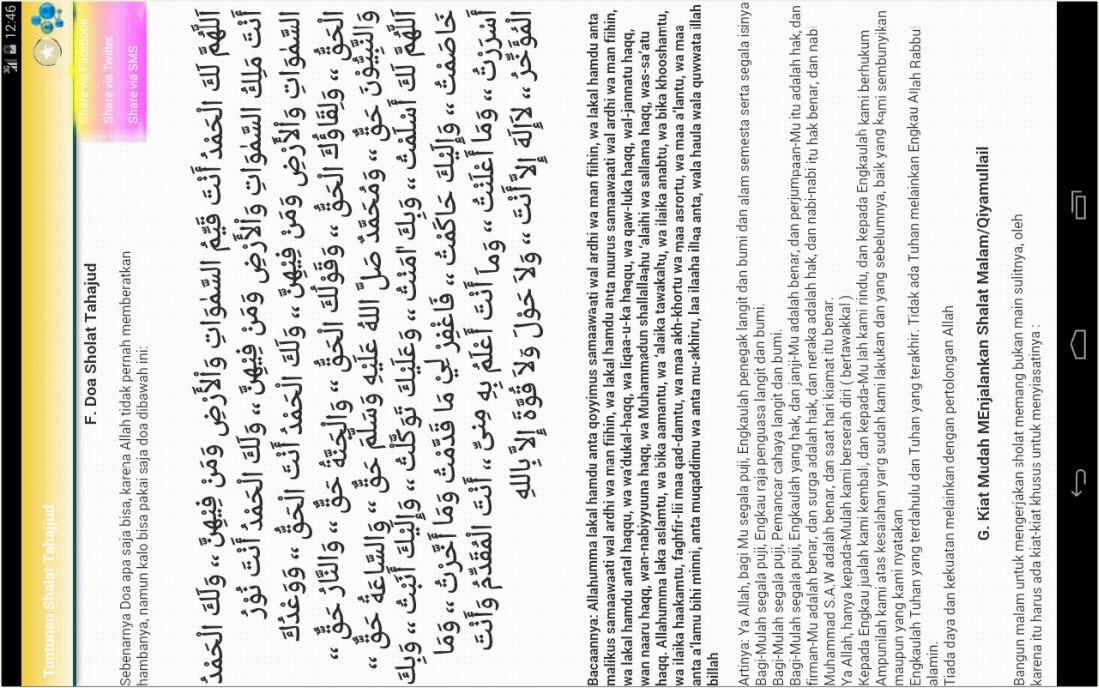 12:46
Tuntunan Shalat Tahajjud
Share via Facebook
Share via Twitter
Share via SMS
F. Doa Sholat Tahajud
Sebenarnya Doa apa saja bisa, karena Allah tidak pernah memberatkan
hambanya, namun kalo bisa pakai saja doa dibawah ini:
اَللّٰهُمَّ لَكَ الْحَمْدُ أَنْتَ قَيِّمُ السَّمٰوَاتِ وَالْأَرْضِ وَمَنْ فِيْهِنَّ ،، وَلَكَ الْحَمْدُ
أَنْتَ مَلِكُ السَّمٰوَاتِ وَالْأَرْضِ وَمَنْ فِيْهِنَّ ،، وَلَكَ الْحَمْدُ أَنْتَ نُوْرُ
السَّمٰوَاتِ وَالْأَرْضِ وَمَنْ فِيْهِنَّ ،، وَلَكَ الْحَمْدُ أَنْتَ الْحَقُّ ،، وَوَعْدُكَ
الْحَقُّ ،، وَلِقَاؤُكَ الْحَقُّ ،، وَقَوْلُكَ الْحَقُّ ،، وَالْجَنَّةُ حَقٌّ ،، وَالنَّارُ حَقٌّ ،،
وَالنَّبِيُّوْنَ حَقٌّ ،، وَمُحَمَّدٌ صَلَّ اللهُ عَلَيْهِ وَسَلَّمَ حَقٌّ ،، وَالسَّاعَةُ حَقٌّ ،،
اَللّٰهُمَّ لَكَ أَسْلَمْتُ ،، وَبِكَ اٰمَنْتُ ،، وَعَلَيْكَ تَوَكَّلْتُ ،، وَإِلَيْكَ أَنَبْتُ ،، وَبِكَ
خَاصَمْتُ ،، وَإِلَيْكَ حَاكَمْتُ ،، فَاغْفِرْ لِيْ مَا قَدَّمْتُ وَمَا أَخَّرْتُ ،، وَمَا
أَسْرَرْتُ ،، وَمَا أَعْلَنْتُ ،، وَمَا أَنْتَ أَعْلَمُ بِهِ مِنِّى ،، أَنْتَ الْمُقَدِّمُ وَأَنْتَ
الْمُؤَخِّرُ ،، لَاإِلَهَ إِلَّا أَنْتَ ،، وَلَا حَوْلَ وَلَا قُوَّةَ إِلَّا بِاللهِ
Bacaannya: Allahumma lakal hamdu anta qoyyimus samaawaati wal ardhi wa man fiihin, wa lakal hamdu anta
malikus samaawaati wal ardhi wa man fiihin, wa lakal hamdu anta nuurus samaawaati wal ardhi wa man fiihin,
wa lakal hamdu antal haqqu, wa wa'dukal-haqq, wa liqaa-u-ka haqqu, wa qaw-luka haqq, wal-jannatu haqq,
wan naaru haqq, wan-nabiyyuuna haqq, wa Muhammadun shallallaahu 'alaihi wa sallama haqq, was-sa'atu
haqq. Allahumma laka aslamtu, wa bika aamantu, wa 'alaika tawakaltu, wa ilaika anabtu, wa bika khooshamtu,
wa ilaika haakamtu, faghfir-lii maa qad-damtu, wa maa akh-khortu wa maa asrortu, wa maa a'lantu, wa maa
anta a'lamu bihi minni, anta muqaddimu wa anta mu-akhiru, laa ilaaha illaa anta, wala haula wala quwwata illah
billah
Artinya: Ya Allah, bagi Mu segala puji, Engkaulah penegak langit dan bumi dan alam semesta serta segala isinya
Bagi-Mulah segala puji, Engkau raja penguasa langit dan bumi.
Bagi-Mulah segala puji, Pemancar cahaya langit dan bumi.
Bagi-Mulah segala puji, Engkaulah yang hak, dan janji-Mu adalah benar, dan perjumpaan-Mu itu adalah hak, dan
firman-Mu adalah benar, dan surga adalah hak, dan neraka adalah hak, dan nabi-nabi itu hak benar, dan nabi
Muhammad S.A.W adalah benar, dan saat hari kiamat itu benar.
Ya Allah, hanya kepada-Mulah kami berserah diri ( bertawakkal )
Kepada Engkau jualah kami kembali, dan kepada-Mu lah kami rindu, dan kepada Engkaulah kami berhukum
Ampunilah kami atas kesalahan yang sudah kami lakukan dan yang sebelumnya, baik yang kami sembunyikan
maupun yang kami nyatakan
Engkaulah Tuhan yang terdahulu dan Tuhan yang terakhir. Tidak ada Tuhan melainkan Engkau Allah Rabbul
alamin.
Tiada daya dan kekuatan melainkan dengan pertolongan Allah
G. Kiat Mudah MEnjalankan Shalat Malam/Qiyamullail
Bangun malam untuk mengerjakan sholat memang bukan main sulitnya, oleh
karena itu harus ada kiat-kiat khusus untuk menyiasatinya :